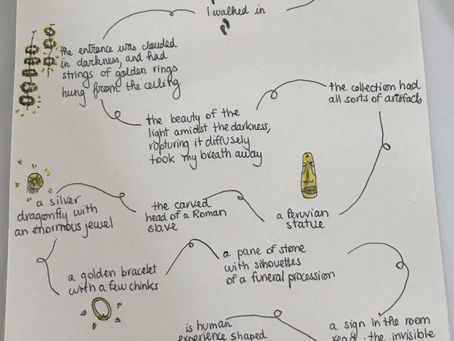 I walked in
the entrance was clouded
in darkness, and had
strings of golden rings
hung from the ceiling
the beauty of the
light amidst the darkness,
rupturing it diffusely
took my breath away
the collection had
all sorts of artefacts
a Peruvian
statue
the carved
head of a Roman
slave
a silver
dragonfly with
an enormous jewel
a golden bracelet
with a few chinks
a pane of stone
with sihouettes
of a funeral procession
a sign in the room
the invisible
is human
experience shaped